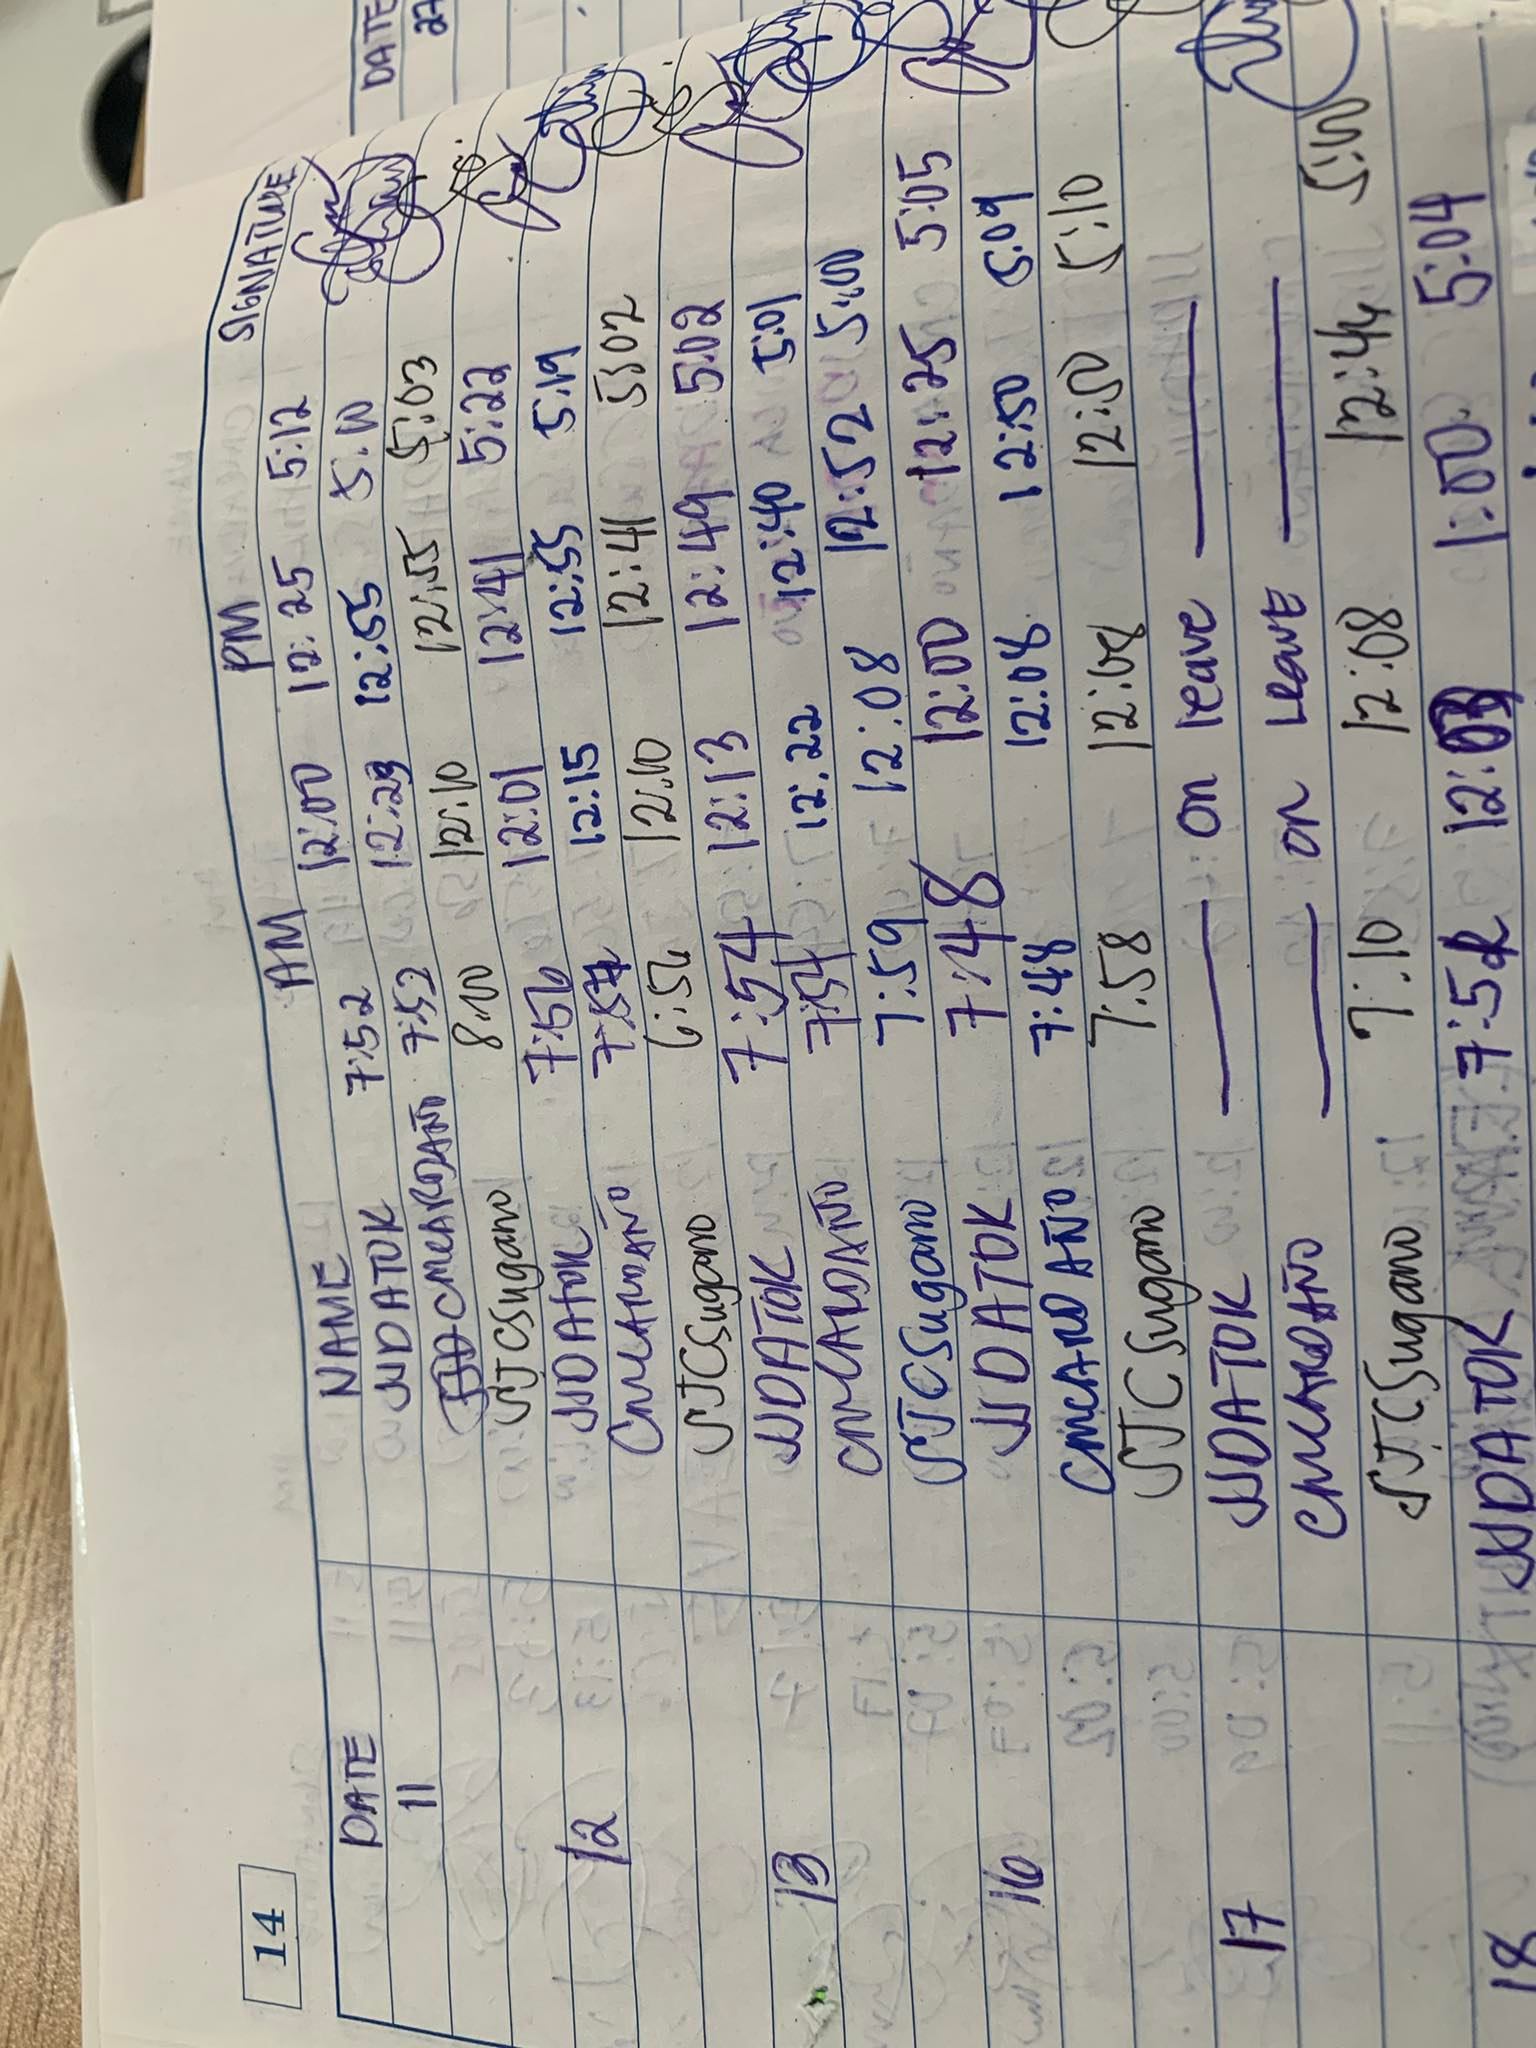 14
DATE NAME AM PM SIGNATURE
11 JJDATOK 7:52 12:00 12:25 5:12
CMCARDAÑO 7:52 12:29 12:55 5:10
STCSugano 8:00 12:10 12:55 5:03
12 JJDATOK 7:56 12:01 12:41 5:22
CMCARDAÑO 7:57 12:15 12:55 5:19
STCSugano 6:56 12:10 12:41 5:02
13 JJDATOK 7:54 12:13 12:49 5:02
CMCARDAÑO 7:54 12:22 12:40 5:01
STCSugano 7:59 12:08 12:52 5:00
16 JJDATOK 7:48 12:00 12:25 5:05
CMCARDAÑO 7:48 12:08 12:50 5:09
STCSugano 7:58 12:08 12:50 5:10
17 JJDATOK — on leave —
CMCARDAÑO — on leave —
STCSugano 7:10 12:08 12:44 5:10
18 JJDATOK 12:03 1:00 5:04
DATE
27